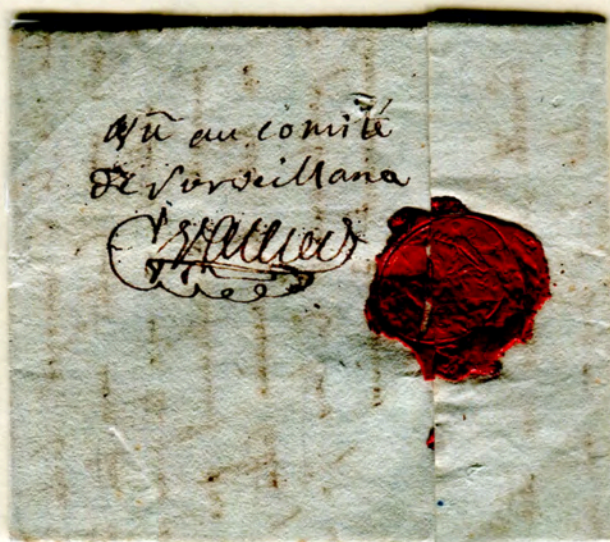 Vu au comité
de Surveillance